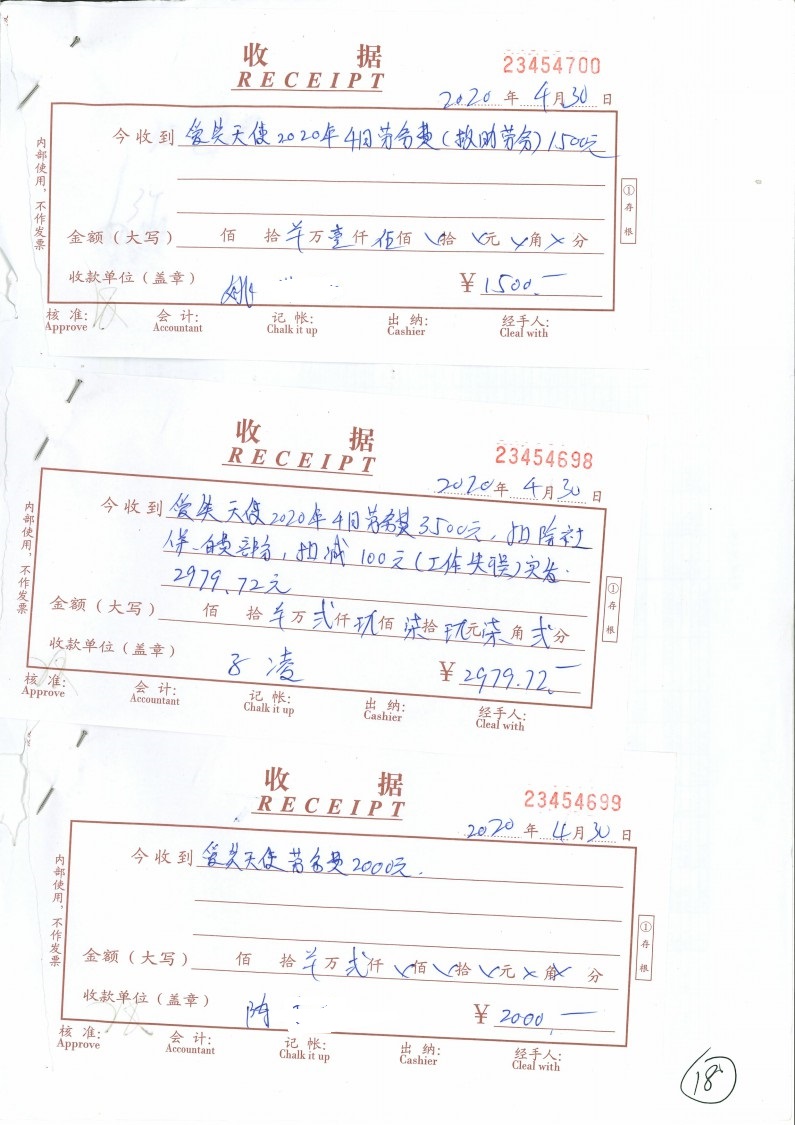 收 据
RECEIPT
23454700
2020 年 4 月 30 日
今收到 爱笑天使2020年4月劳务费(救助劳务)1500元
金额(大写) 佰 拾 羊万 壹仟 伍佰 ㄨ拾 ㄨ元 ㄨ角 ㄨ分
收款单位(盖章) 姚
¥ 1500.一
核 准: 会 计: 记 帐: 出 纳: 经手人:
Approve Accountant Chalk it up Cashier Cleal with
内部使用,不作发票
①存根
收 据
RECEIPT
23454698
2020 年 4 月 30 日
今收到 爱笑天使2020年4月劳务费3500元,扣除社
保自费部分,扣减100元(工作失误)实发
2979.72元
金额(大写) 佰 拾 羊万 弍仟 玖佰 柒拾 玖元 柒角 弍分
收款单位(盖章) 凌
¥ 2979.72一
核 准: 会 计: 记 帐: 出 纳: 经手人:
Approve Accountant Chalk it up Cashier Cleal with
内部使用,不作发票
①存根
收 据
RECEIPT
23454699
2020 年 4 月 30 日
今收到 爱笑天使劳务费2000元.
金额(大写) 佰 拾 羊万 弍仟 ㄨ佰 ㄨ拾 ㄨ元 ㄨ角 ㄨ分
收款单位(盖章) 陈
¥ 2000.一
核 准: 会 计: 记 帐: 出 纳: 经手人:
Approve Accountant Chalk it up Cashier Cleal with
内部使用,不作发票
①存根
18